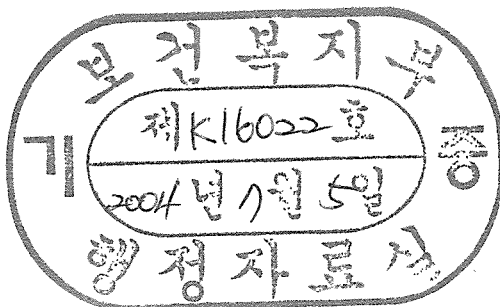 보건복지부
기 증
제K16022호
2004년 7월 5일
행정자료실